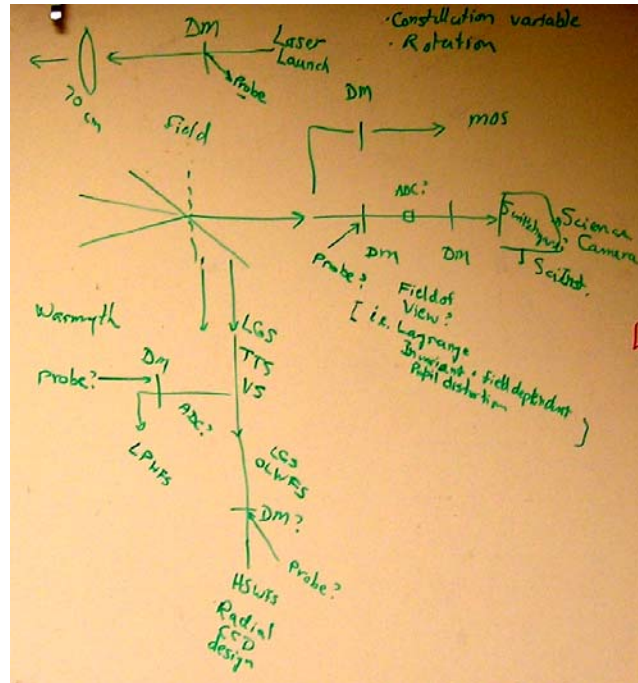 · Constellation variable
· Rotation
DM
Laser
Launch
Probe
70 cm
DM
MOS
Field
ADC?
Switchyard
Science
Camera
Sci Inst.
Probe?
DM
DM
Field of
View?
[ i.e. Lagrange
Invariant + field dependent
Pupil distortion ]
LGS
TTS
VS
DM
Probe?
ADC?
LPWFS
LGS
OLWFS
DM?
Probe?
HSWFS
Radial
CCD
design